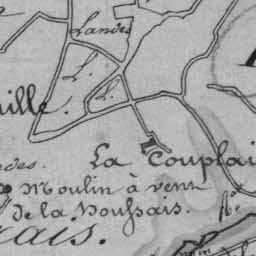 Landes
L.
L.
ille.
La Couplai
des.
Moulin à vent
de la Houssais.
ais.